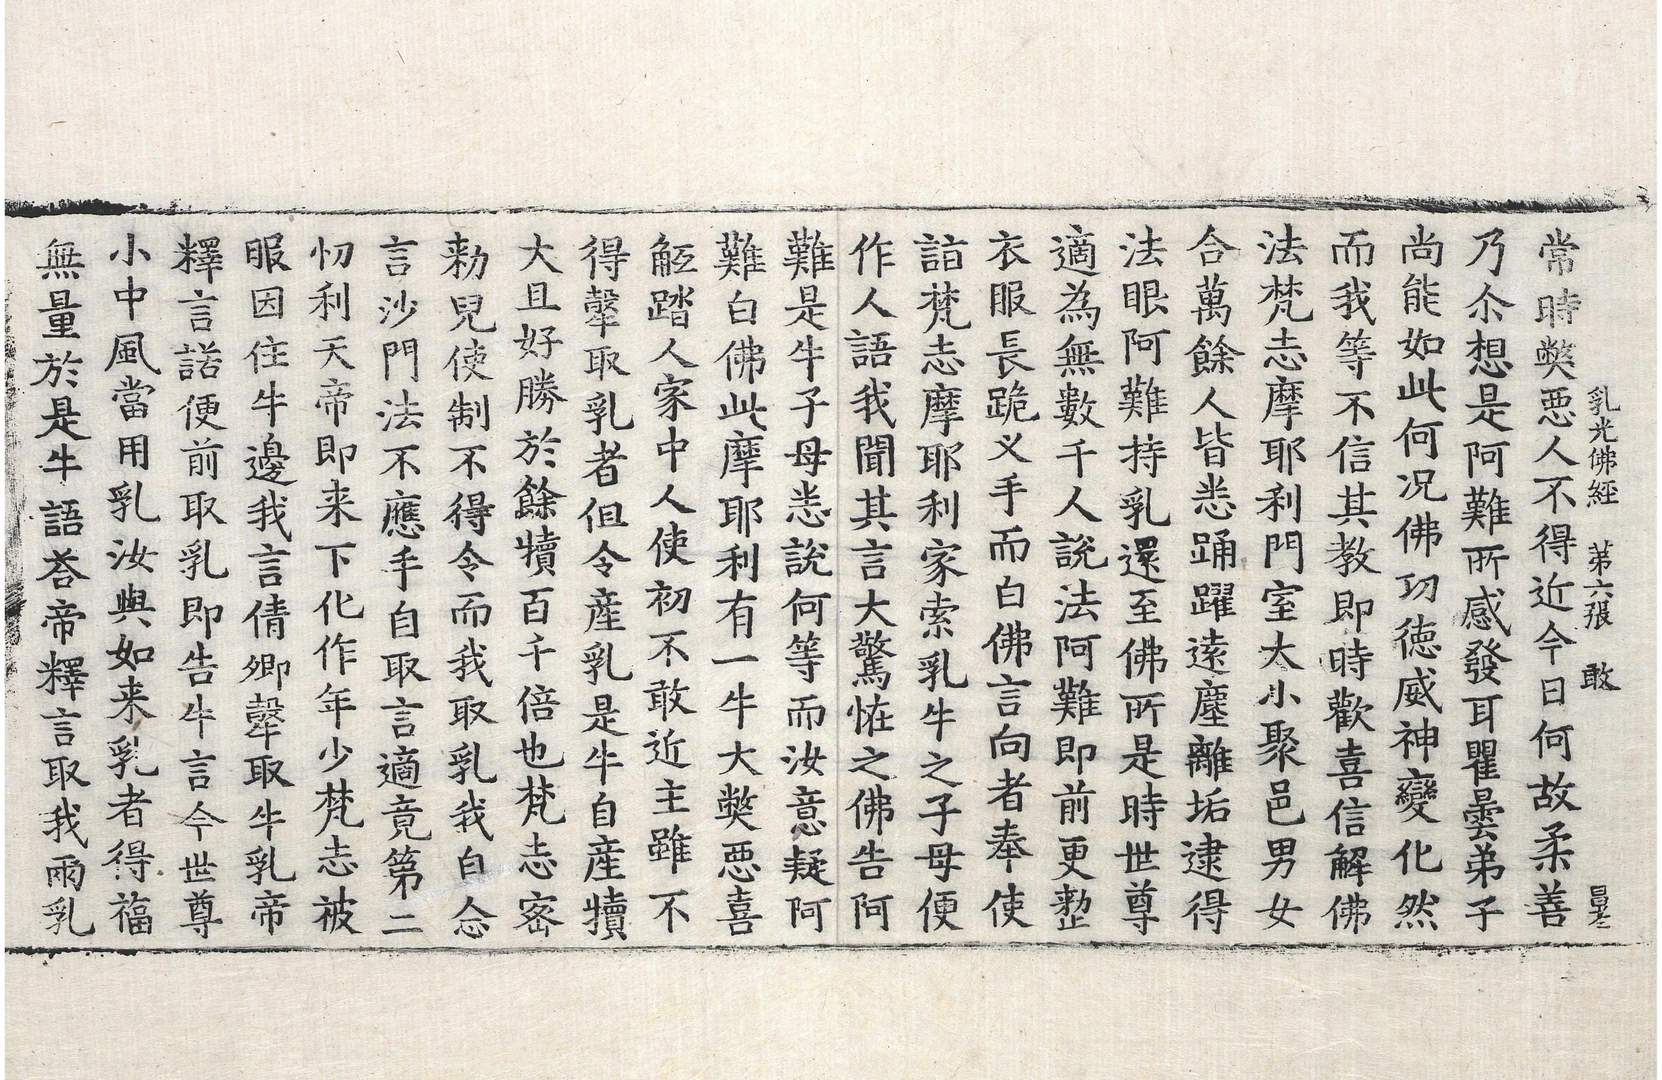 乳光佛經 第六張 敢
常時弊惡人不得近今日何故柔善
乃尒想是阿難所感發耳瞿曇弟子
尚能如此何况佛功德威神變化然
而我等不信其教即時歡喜信解佛
法梵志摩耶利門室大小聚邑男女
合萬餘人皆悉踊躍遠塵離垢逮得
法眼阿難持乳還至佛所是時世尊
適為無數千人說法阿難即前更整
衣服長跪叉手而白佛言向者奉使
詣梵志摩耶利家索乳牛之子母便
作人語我聞其言大驚怪之佛告阿
難是牛子母悉說何等而汝意疑阿
難白佛此摩耶利有一牛大弊惡喜
觝踏人家中人使初不敢近主雖不
得㲉取乳者但令產乳是牛自產犢
大且好勝於餘犢百千倍也梵志密
勑兒使制不得令而我取乳我自念
言沙門法不應手自取言適竟第二
忉利天帝即来下化作年少梵志被
服因住牛邊我言倩卿㲉取牛乳帝
釋言諾便前取乳即告牛言今世尊
小中風當用乳汝與如来乳者得福
無量於是牛語荅帝釋言取我兩乳